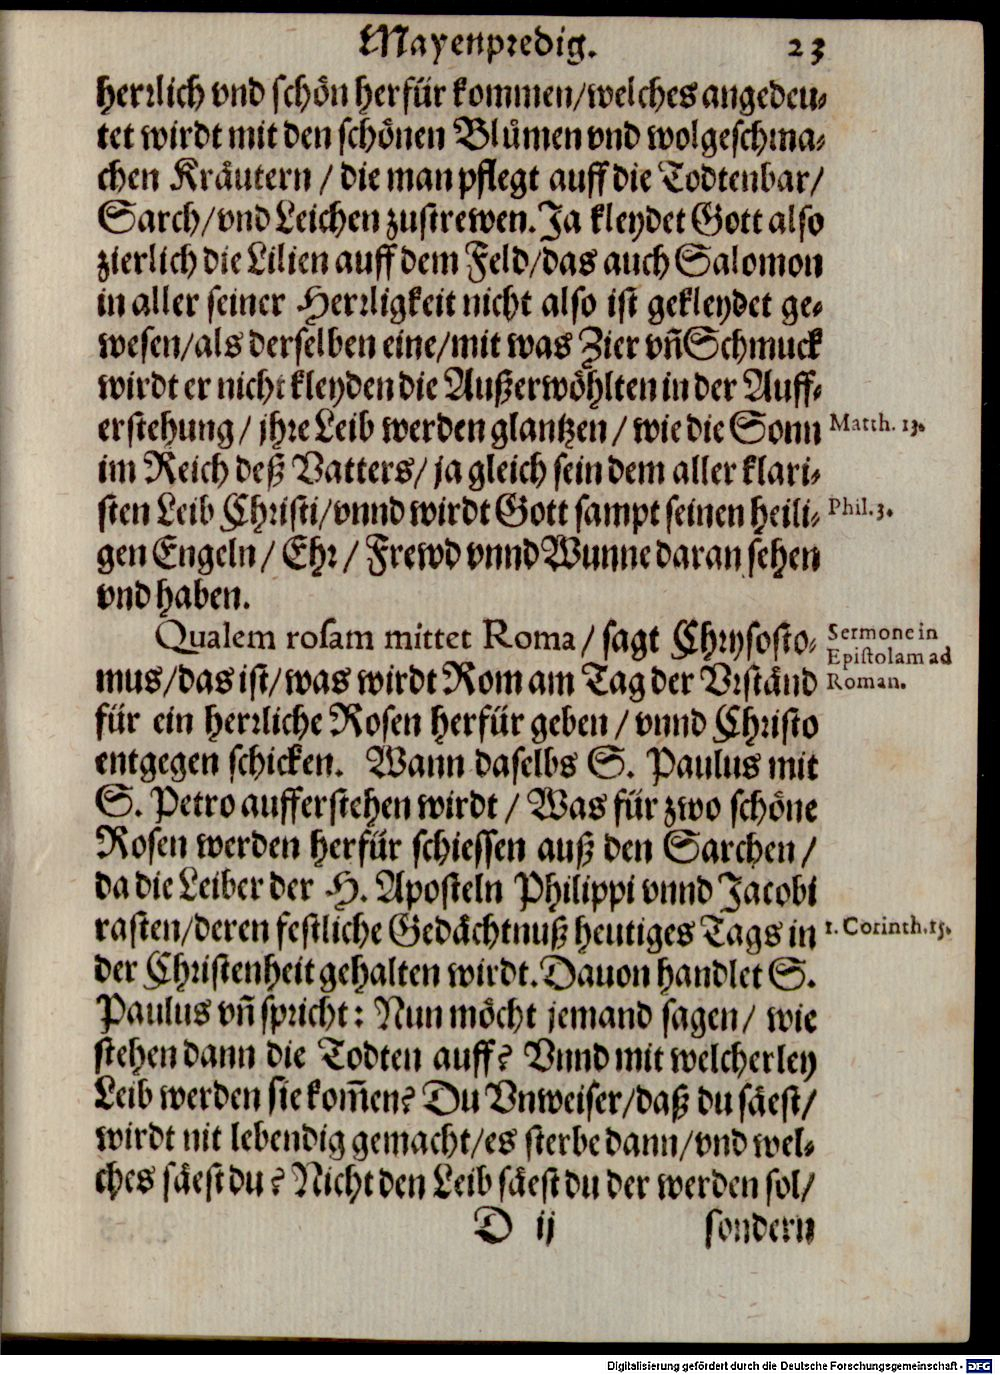 Mayenpredig. 23
herrlich vnd schön herfür kommen/welches angedeu-
tet wirdt mit den schönen Blůmen vnd wolgeschma-
chen Kräutern / die man pflegt auff die Todtenbar/
Sarch/vnd Leichen zustrewen. Ja kleydet Gott also
zierlich die Lilien auff dem Feld/das auch Salomon
in aller seiner Herrligkeit nicht also ist gekleydet ge-
wesen/als derselben eine/mit was Zier vñ Schmuck
wirdt er nicht kleyden die Außerwöhlten in der Auff-
erstehung/ jhre Leib werden glantzen / wie die Sonn Matth. 13.
im Reich deß Vatters/ ja gleich sein dem aller klari-
sten Leib Christi/vnnd wirdt Gott sampt seinen heili- Phil. 3.
gen Engeln / Ehr / Frewd vnnd Wunne daran sehen
vnd haben.
Qualem rosam mittet Roma / sagt Chrysosto- Sermone in
Epistolam ad
mus/das ist/was wirdt Rom am Tag der Vrständ Roman.
für ein herrliche Rosen herfür geben / vnnd Christo
entgegen schicken. Wann daselbs S. Paulus mit
S. Petro aufferstehen wirdt / Was für zwo schöne
Rosen werden herfür schiessen auß den Sarchen /
da die Leiber der H. Aposteln Philippi vnnd Jacobi
rasten/deren festliche Gedächtnuß heutiges Tags in 1. Corinth. 15.
der Christenheit gehalten wirdt. Dauon handlet S.
Paulus vñ spricht: Nun möcht jemand sagen/ wie
stehen dann die Todten auff? Vnnd mit welcherley
Leib werden sie kom̃en? Du Vnweiser/daß du säest/
wirdt nit lebendig gemacht/es sterbe dann/vnd wel-
ches säest du? Nicht den Leib säest du der werden sol/
D ij sondern
Digitalisierung gefördert durch die Deutsche Forschungsgemeinschaft - DFG